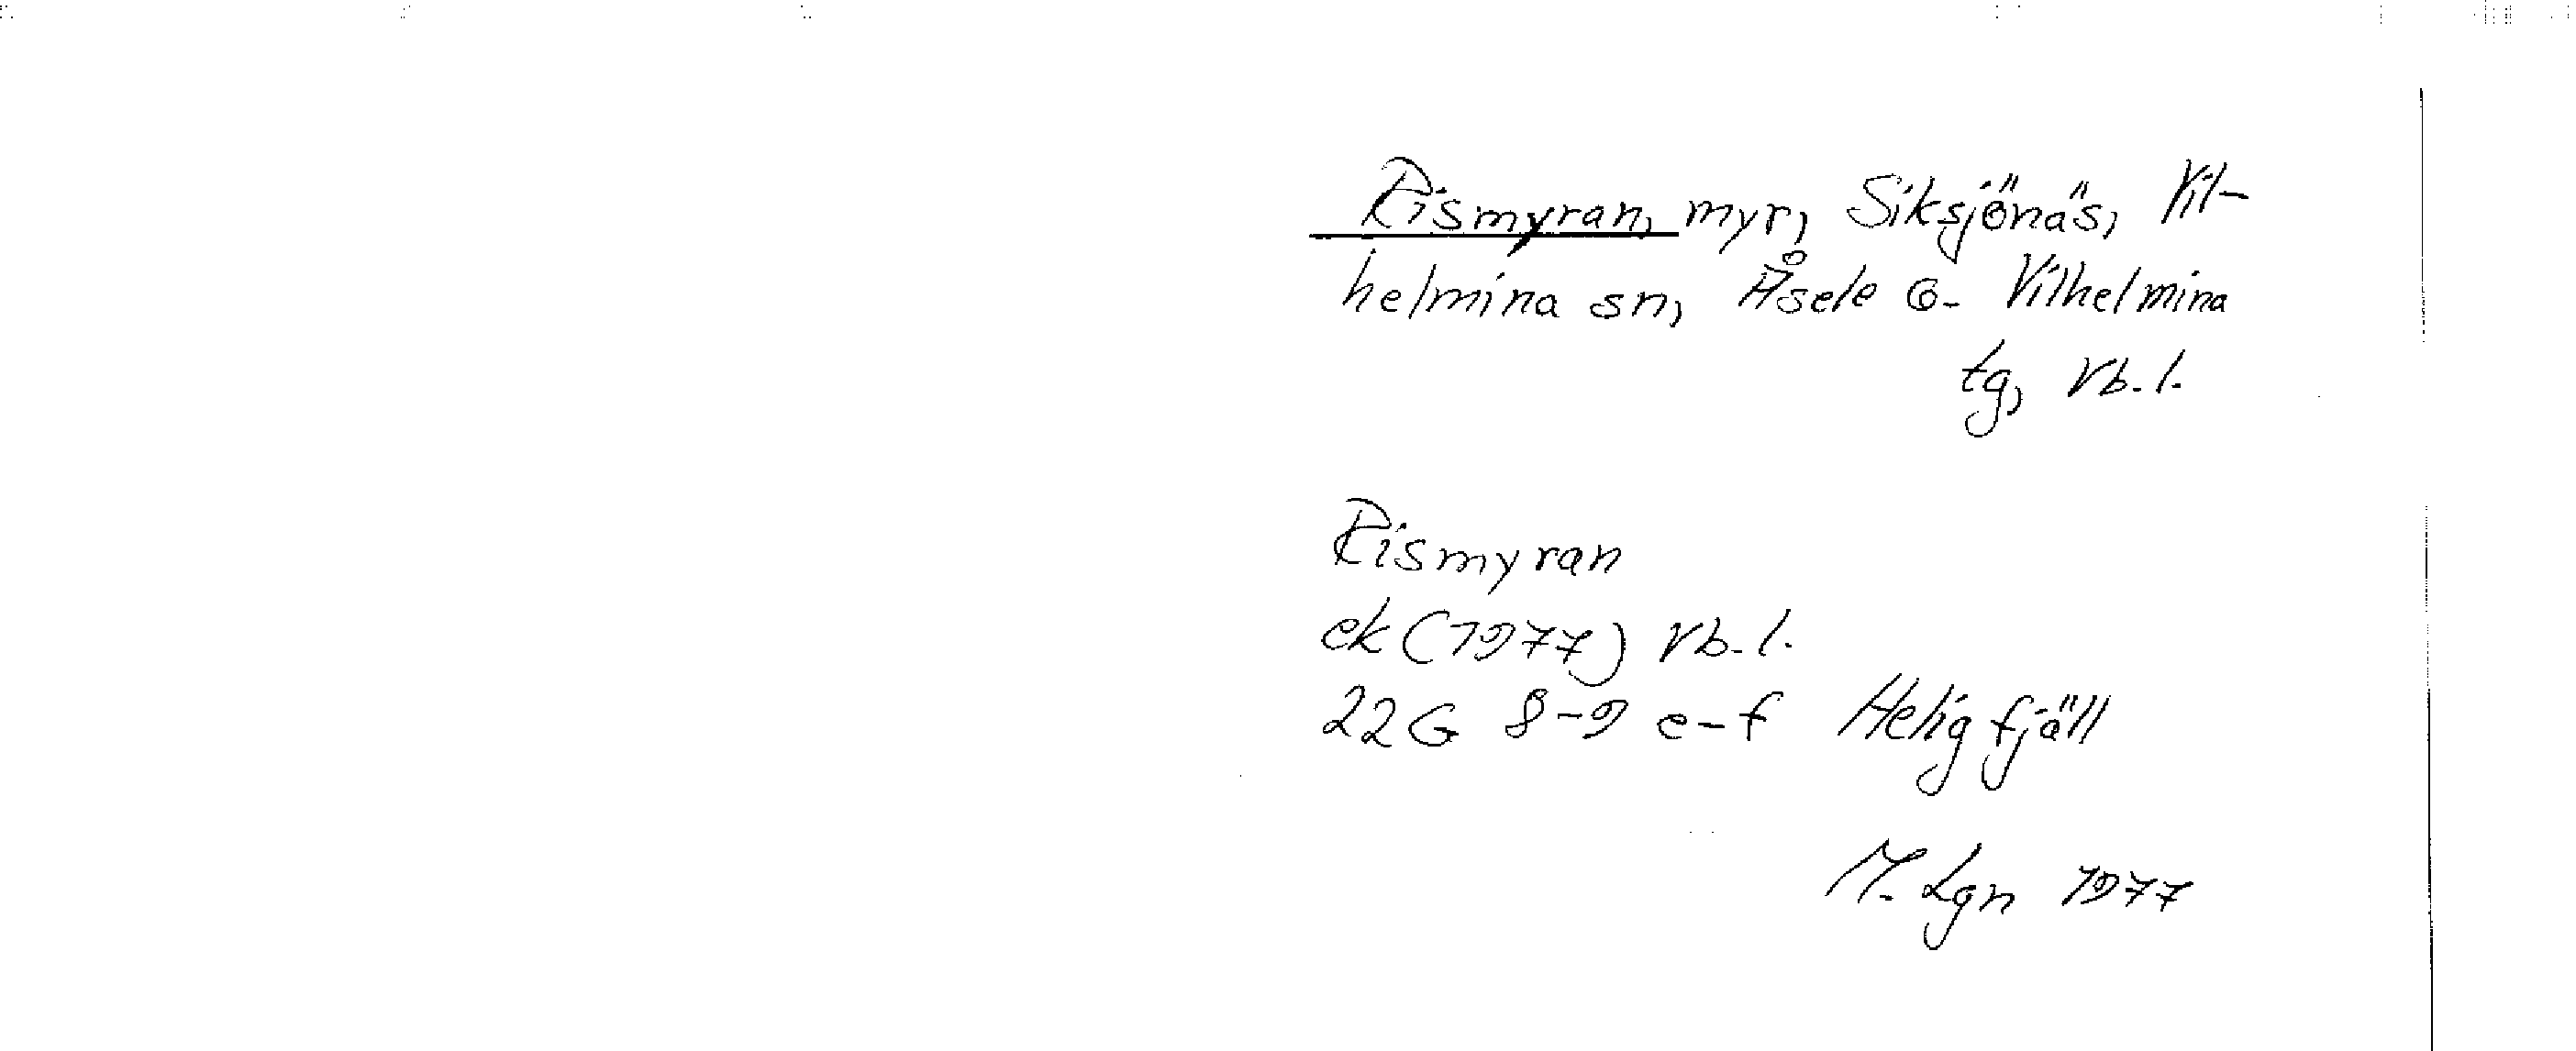 Rismyran, myr, Siksjönäs, Vil-
helmina sn, Åsele o. Vilhelmina
tg, Vb. l.
Rismyran
ek (1977) Vb. l.
22 G 8-9 e-f Heligfjäll
M. Lgn 1977